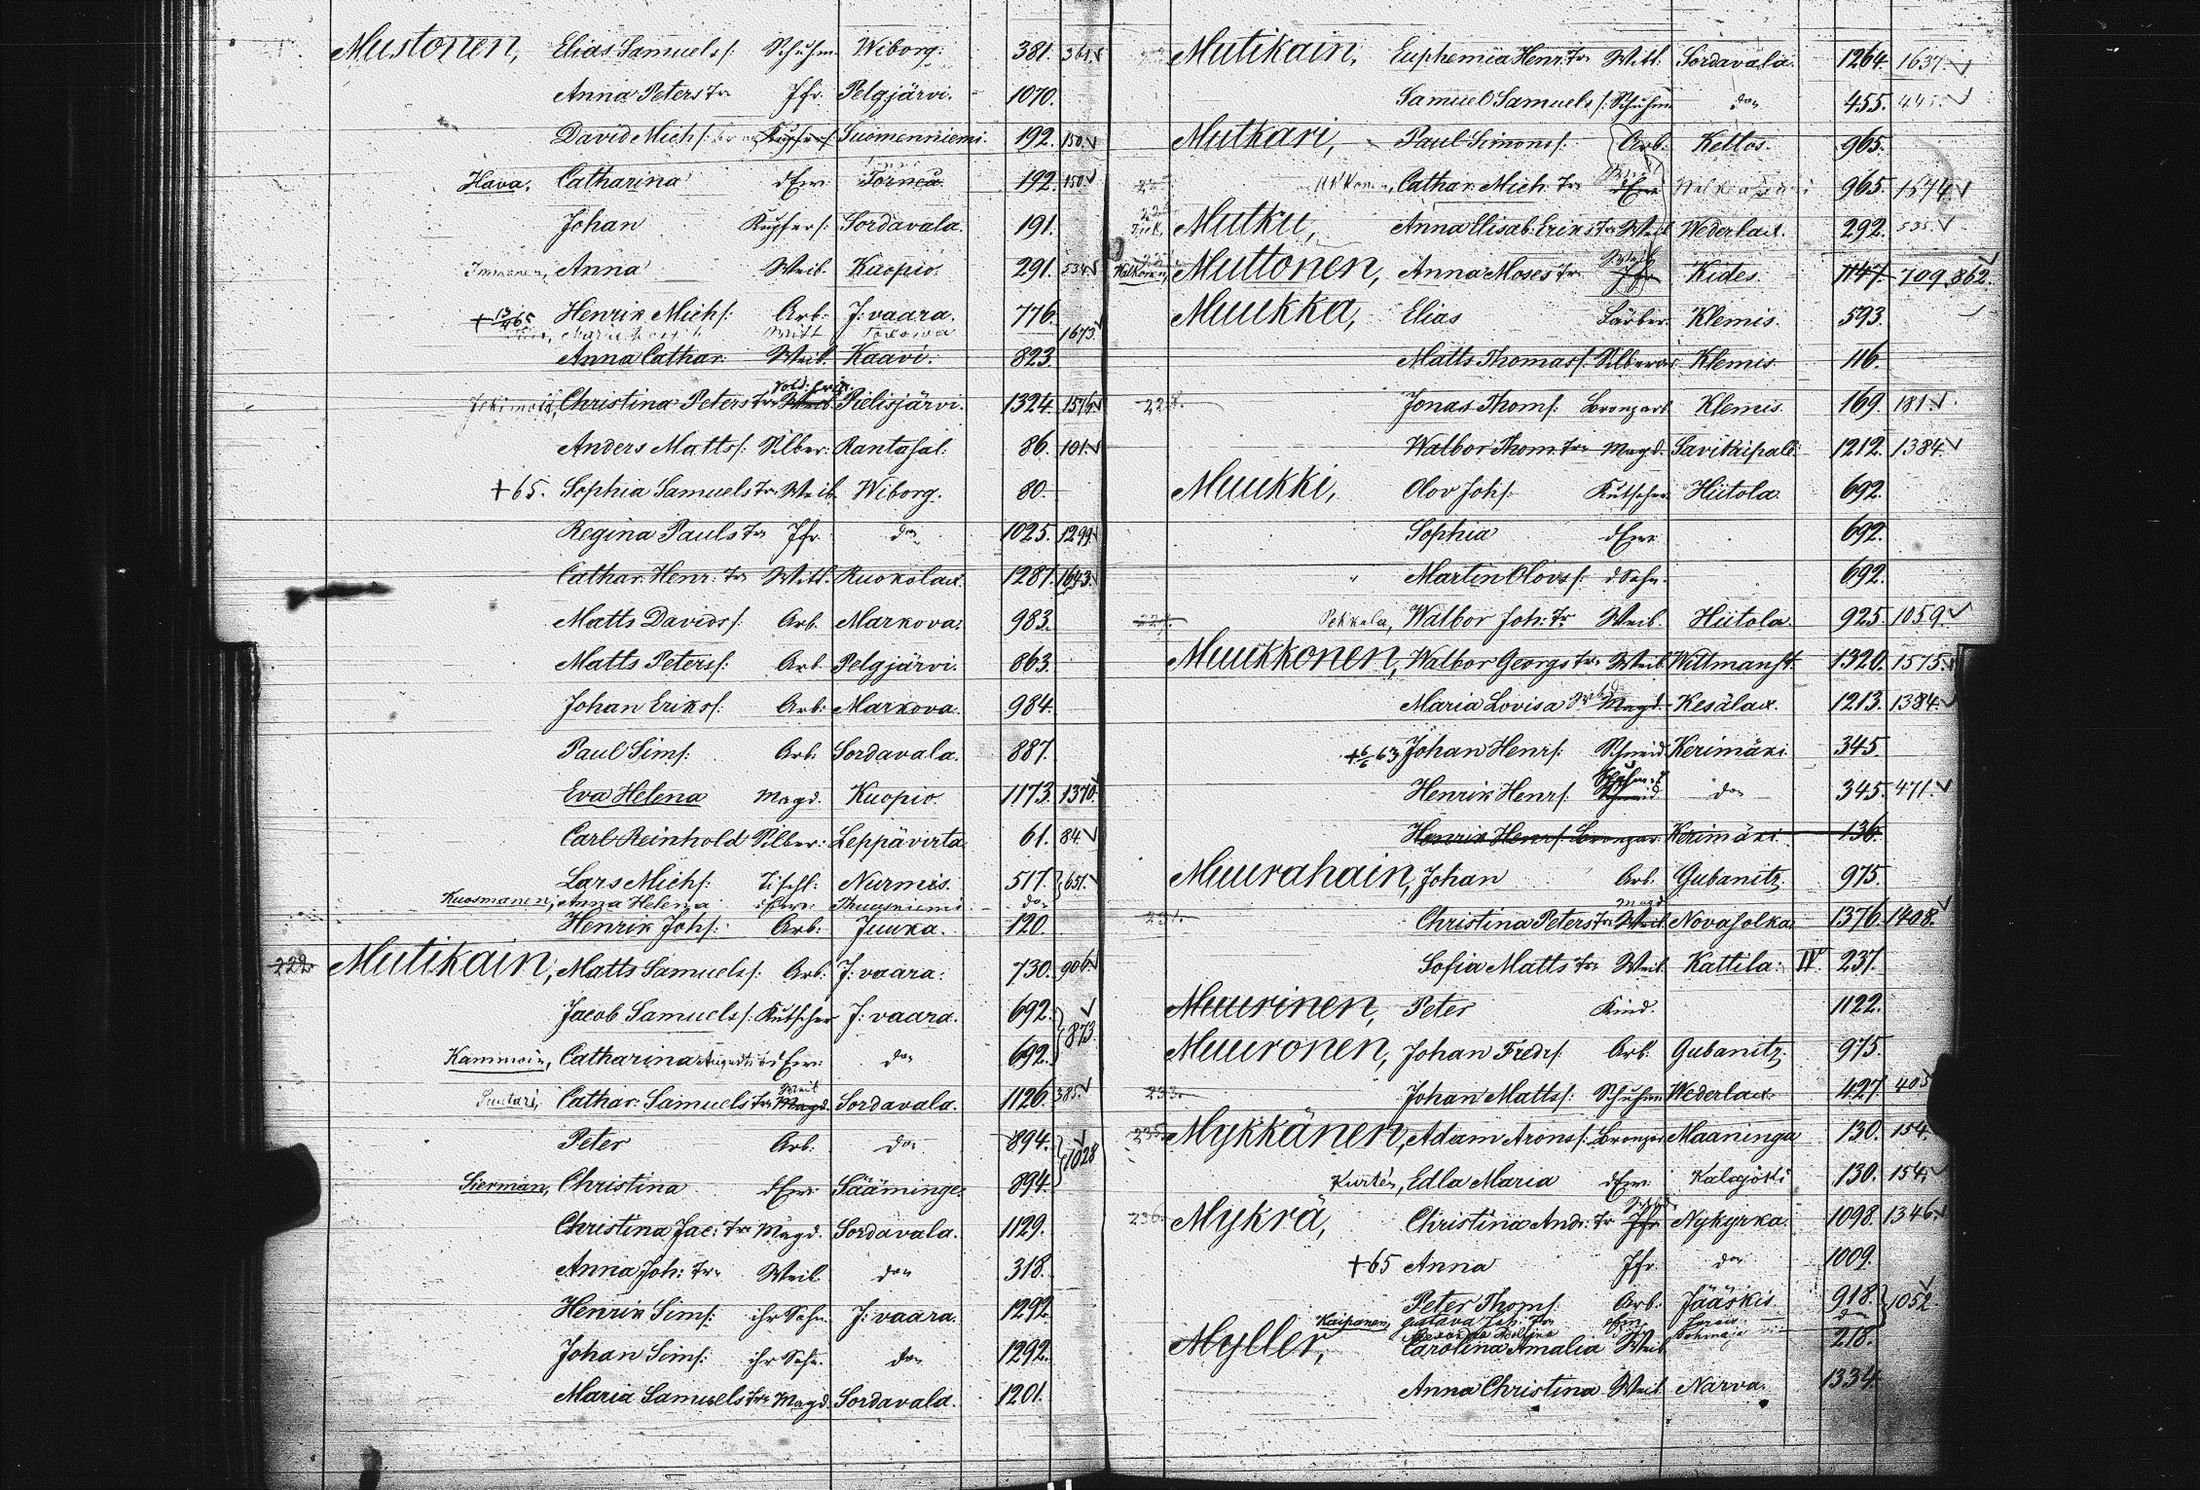 Mustonen, Elias Samuels/: Schuhm. Wiborg. 381. 361.
Anna Peters Tr Jfr. Pelgjärvi. 1070.
David Mich/: Kupfers/ Suomenniemi. 192. 150.
Hava, Catharina dEw. Torneå 192. 150.
Johan Kupfers/: Sordavala. 191.
Immonen, Anna Weib. Kuopio. 291. 534
Henrik Mich/: Arb. J: vaara. 776.
1673.
Anna Cathar. Weib. Kaavi. 823.
Christina Peters Tr Weib. Pielisjärvi. 1324. 1576
Anders Matts/: Silber: Rantasal: 86. 101.
+65. Sophia Samuels Tr Weib. Wiborg. 80.
Regina Pauls Tr Jfr. do 1025. 1299.
Cathar. Henr: Tr Witt. Ruokolax. 1287. 1643.
Matts Davids/: Arb. Markova. 983.
Matts Peters/: Arb. Pelgjärvi. 863.
Johan Eriks/: Arb. Markova. 984.
Paul Sim/: Arb. Sordavala. 887.
Eva Helena Magd. Kuopio. 1173. 1370.
Carl Reinhold Silber: Leppävirta 61. 84.
Lars Mich/: Tischl: Nurmis. 517. 651.
Kuosmanen, Anna Helena dEw: Thuusniemi do
Henrik Joh/: Arb: Juuka. 120.
222. Mutikain, Matts Samuels/: Arb: J: vaara: 730. 906
Jacob Samuels/: Kutscher J: vaara. 692.
873.
Kammoin, Catharina dEw: do 692.
Puntari, Cathar. Samuels Tr Weib Magd. Sordavala. 1126. 385.
Peter Arb: do 894.
1028
Sierman, Christina dEw: Sääminge. 894.
Christina Jac: Tr Magd. Sordavala. 1129.
Anna Joh: Tr Weib. do 318.
Henrik Sim/: ihr Sohn. J: vaara. 1292.
Johan Sim/: ihr Sohn. do 1292.
Maria Samuels Tr Magd. Sordavala. 1201.
Mutikain, Euphemia Henr. Tr Witt: Sordavala. 1264. 1637.
Samuel Samuels/: Schuhm do 455. 445.
Mutkari, Paul Simons/. Arb. Keltos. 965.
Cathar. Mich. Tr dEw 965. 1544
Mutku, Anna Elisab. Eriks Tr Weib Wederlax. 292. 535.
Muttonen, Anna Moses Tr Weib Jfr Kides. 1147. 709. 862.
Muukka, Elias Färber. Klemis. 593.
Matts Thomas/: Silberar Klemis. 116.
228. Jonas Thom/: Bronzarb. Klemis. 169. 181.
Walbor Thom. Tr Magd. Savitaipale: 1212. 1384.
Muukki, Olov Joh/: Kutscher. Hiitola. 692.
Sophia dEw. 692.
Martin Olovs/: dSohn. 692.
Pekkala, Walbor Joh: Tr Weib. Hiitola. 925. 1059.
Muukkonen, Walbor Georgs Tr Weib Willmanst. 1320. 1575.
Maria Lovisa Magd. Kesälax. 1213. 1384.
+6/6 63 Johan Henr/: Schmid Kerimäki. 345
Henrik Henr/: Schuhm. Schmid do 345. 471.
Henrik Henr/: Bronzar. Kerimäki. 136.
Muurahain, Johan Arb: Gubanitz. 975.
Christina Peters Tr Magd Weib. Novasolka. 1376. 1408.
Sofia Matts Tr Weib Kattila: IV. 237.
Muurinen, Peter Kind. 1122.
Muuronen, Johan Fredr/: Arb: Gubanitz. 975.
233. Johan Matts/: Schuhm Wederlax. 427. 405
235. Mykkänen, Adam Arons/: Bronzar Maaninga 130. 154.
Kurtén, Edla Maria dEw. Kalajoki 130. 154.
236. Mykrä, Christina Andr: Tr Jfr Nykyrka. 1098. 1346.
+65 Anna Jfr do 1009.
Peter Thom/: Arb: Jääskis 918. 1052.
Kaiponen, Gustava Joh: Tr
Myller, Carolina Amalia Weib 218.
Anna Christina Weib Narva. 1334.